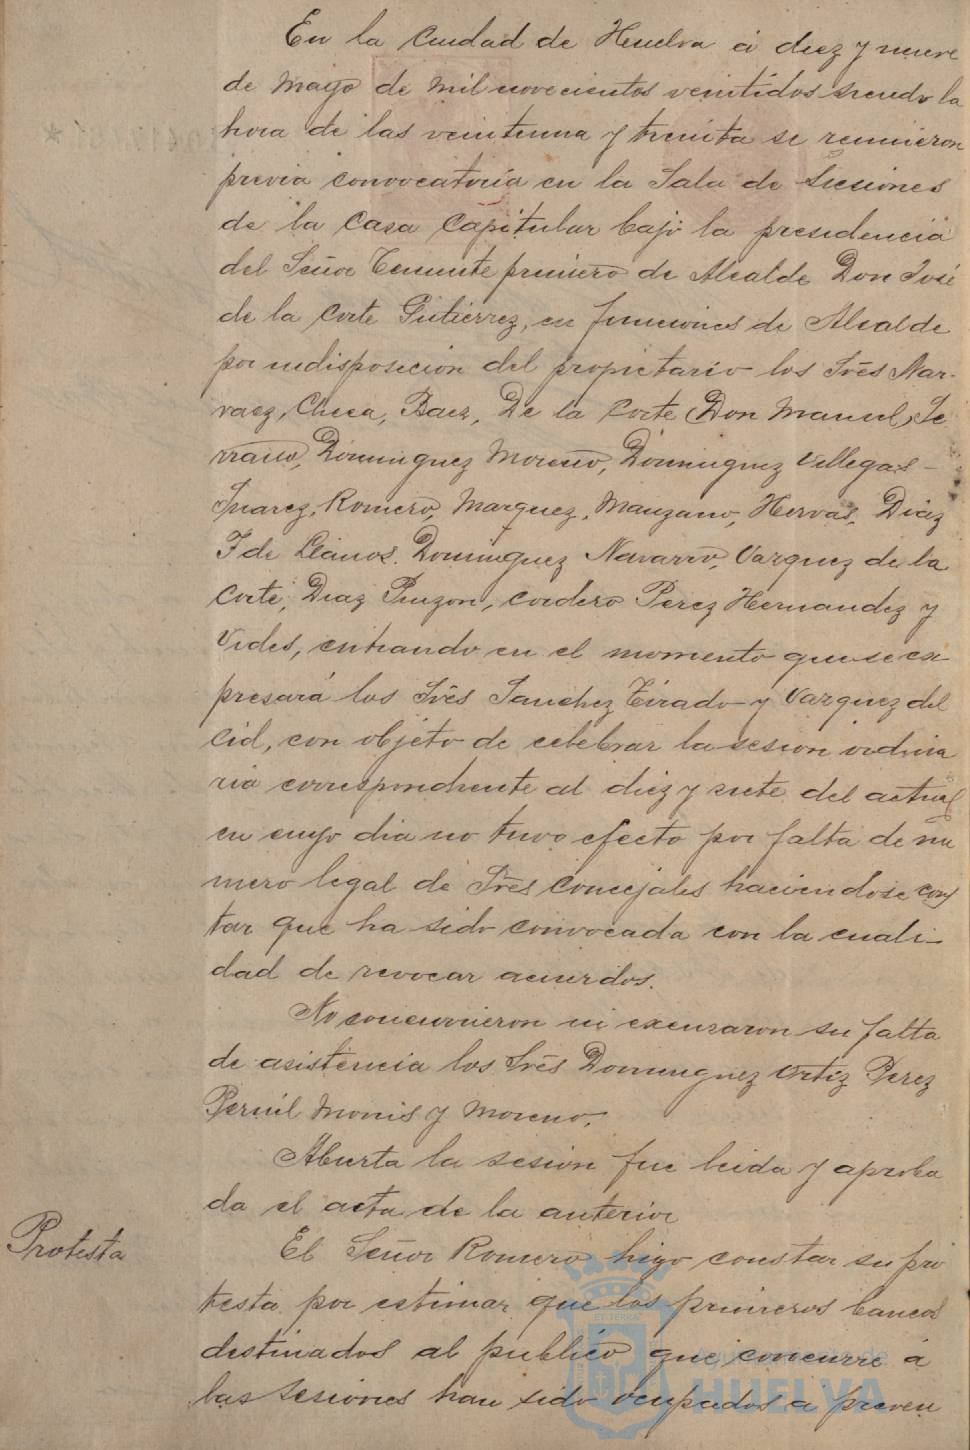 En la Ciudad de Huelva á diez y nueve
de Mayo de mil novecientos veintidos siendo la
hora de las veintiuna y treinta se reunieron
previa convocatoria en la Sala de Sesiones
de la Casa Capitular bajo la presidencia
del Señor Teniente primero de Alcalde Don José
de la Corte Gutierrez, en funciones de Alcalde
por indisposicion del propietario los Srēs Nar-
vaez, Checa, Baez, De la Corte (Don Manuel) Se
rrano, Dominguez Moreno, Dominguez Villegas-
Suarez, Romero, Marquez, Manzano, Hervas, Diaz
F de Llanos. Dominguez Navarro, Vazquez de la
Corte, Diaz Pinzon, Cordero Perez Hernandez y
Vides, entrando en el momento que se ex-
presará los Srēs Sanchez Tirado y Vazquez del
Cid, con objeto de celebrar la sesion ordina
ria correspondiente al diez y siete del actual
en cuyo dia no tuvo efecto por falta de nu
mero legal de Srēs Concejales haciendose cons
tar que ha sido convocada con la cuali-
dad de revocar acuerdos.
No concurrieron ni excusaron su falta
de asistencia los Srēs Dominguez Ortiz Perez
Pernil Monis y Moreno.
Abierta la sesion fue leida y aproba
da el acta de la anterior
Protesta
El Señor Romero hizo constar su pro
testa por estimar que los primeros bancos
destinados al publico que concurre á
las sesiones han sido ocupados a preven
Ayuntamiento de
HUELVA